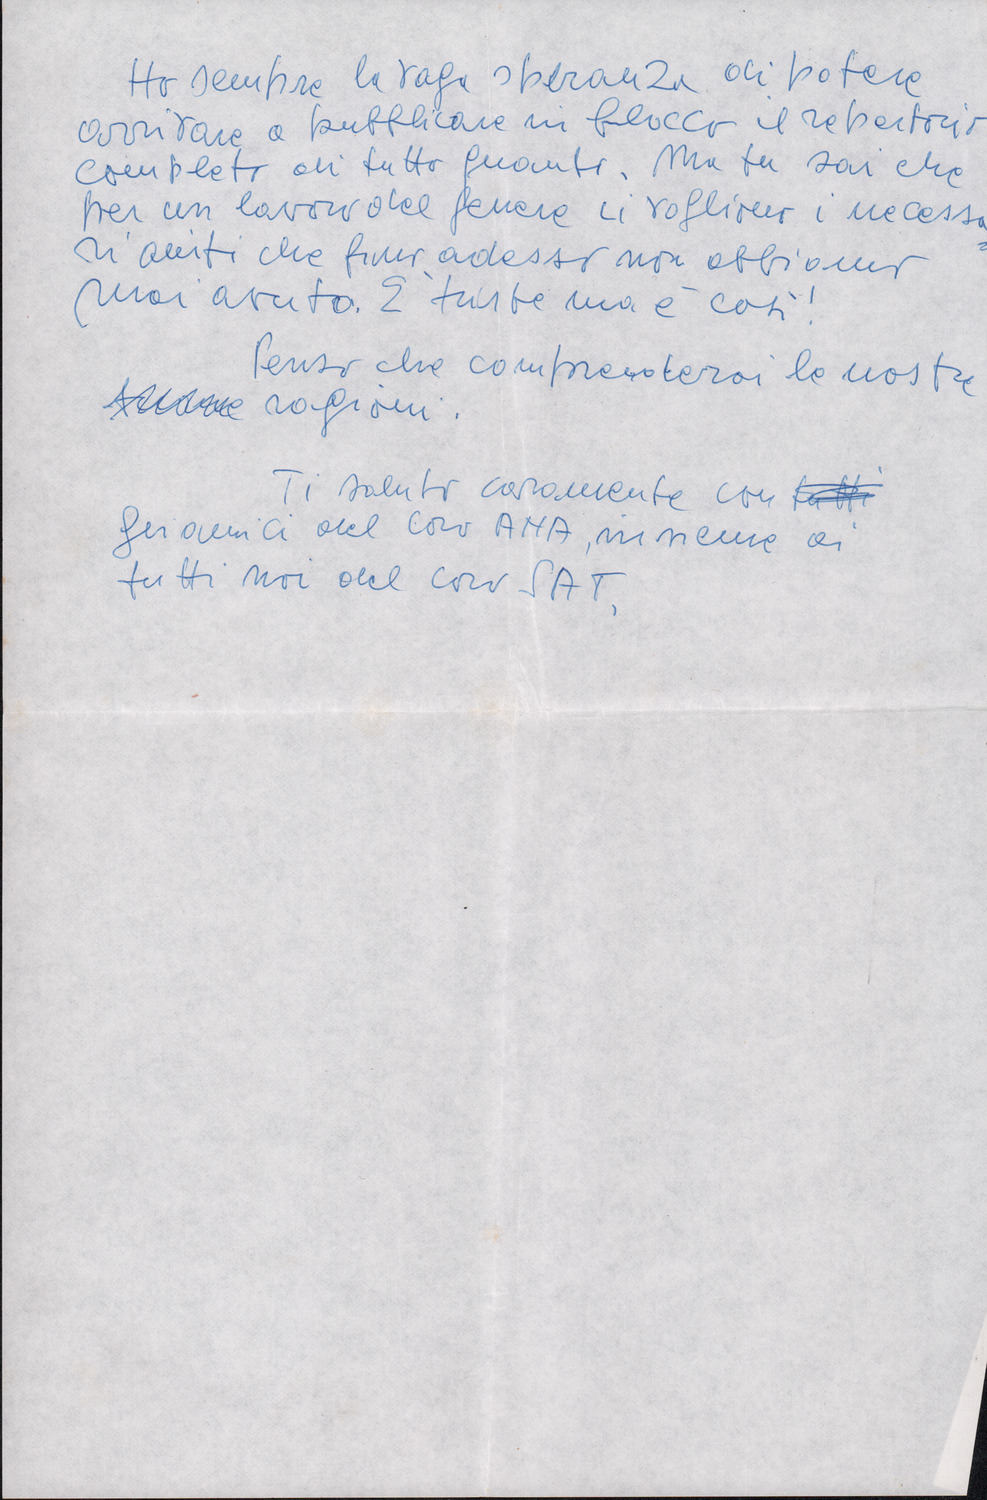 Ho sempre la vaga speranza di potere
arrivare a pubblicare in blocco il repertorio
completo di tutto quanto. Ma tu sai che
per un lavoro del genere ci vogliono i necessa=
ri aiuti che fino adesso non abbiamo
mai avuto. E' triste ma è così!
Penso che comprenderai le nostre
ragioni.
Ti saluto caramente con tutti
gli amici del Coro ANA, insieme ai
tutti noi del coro SAT,